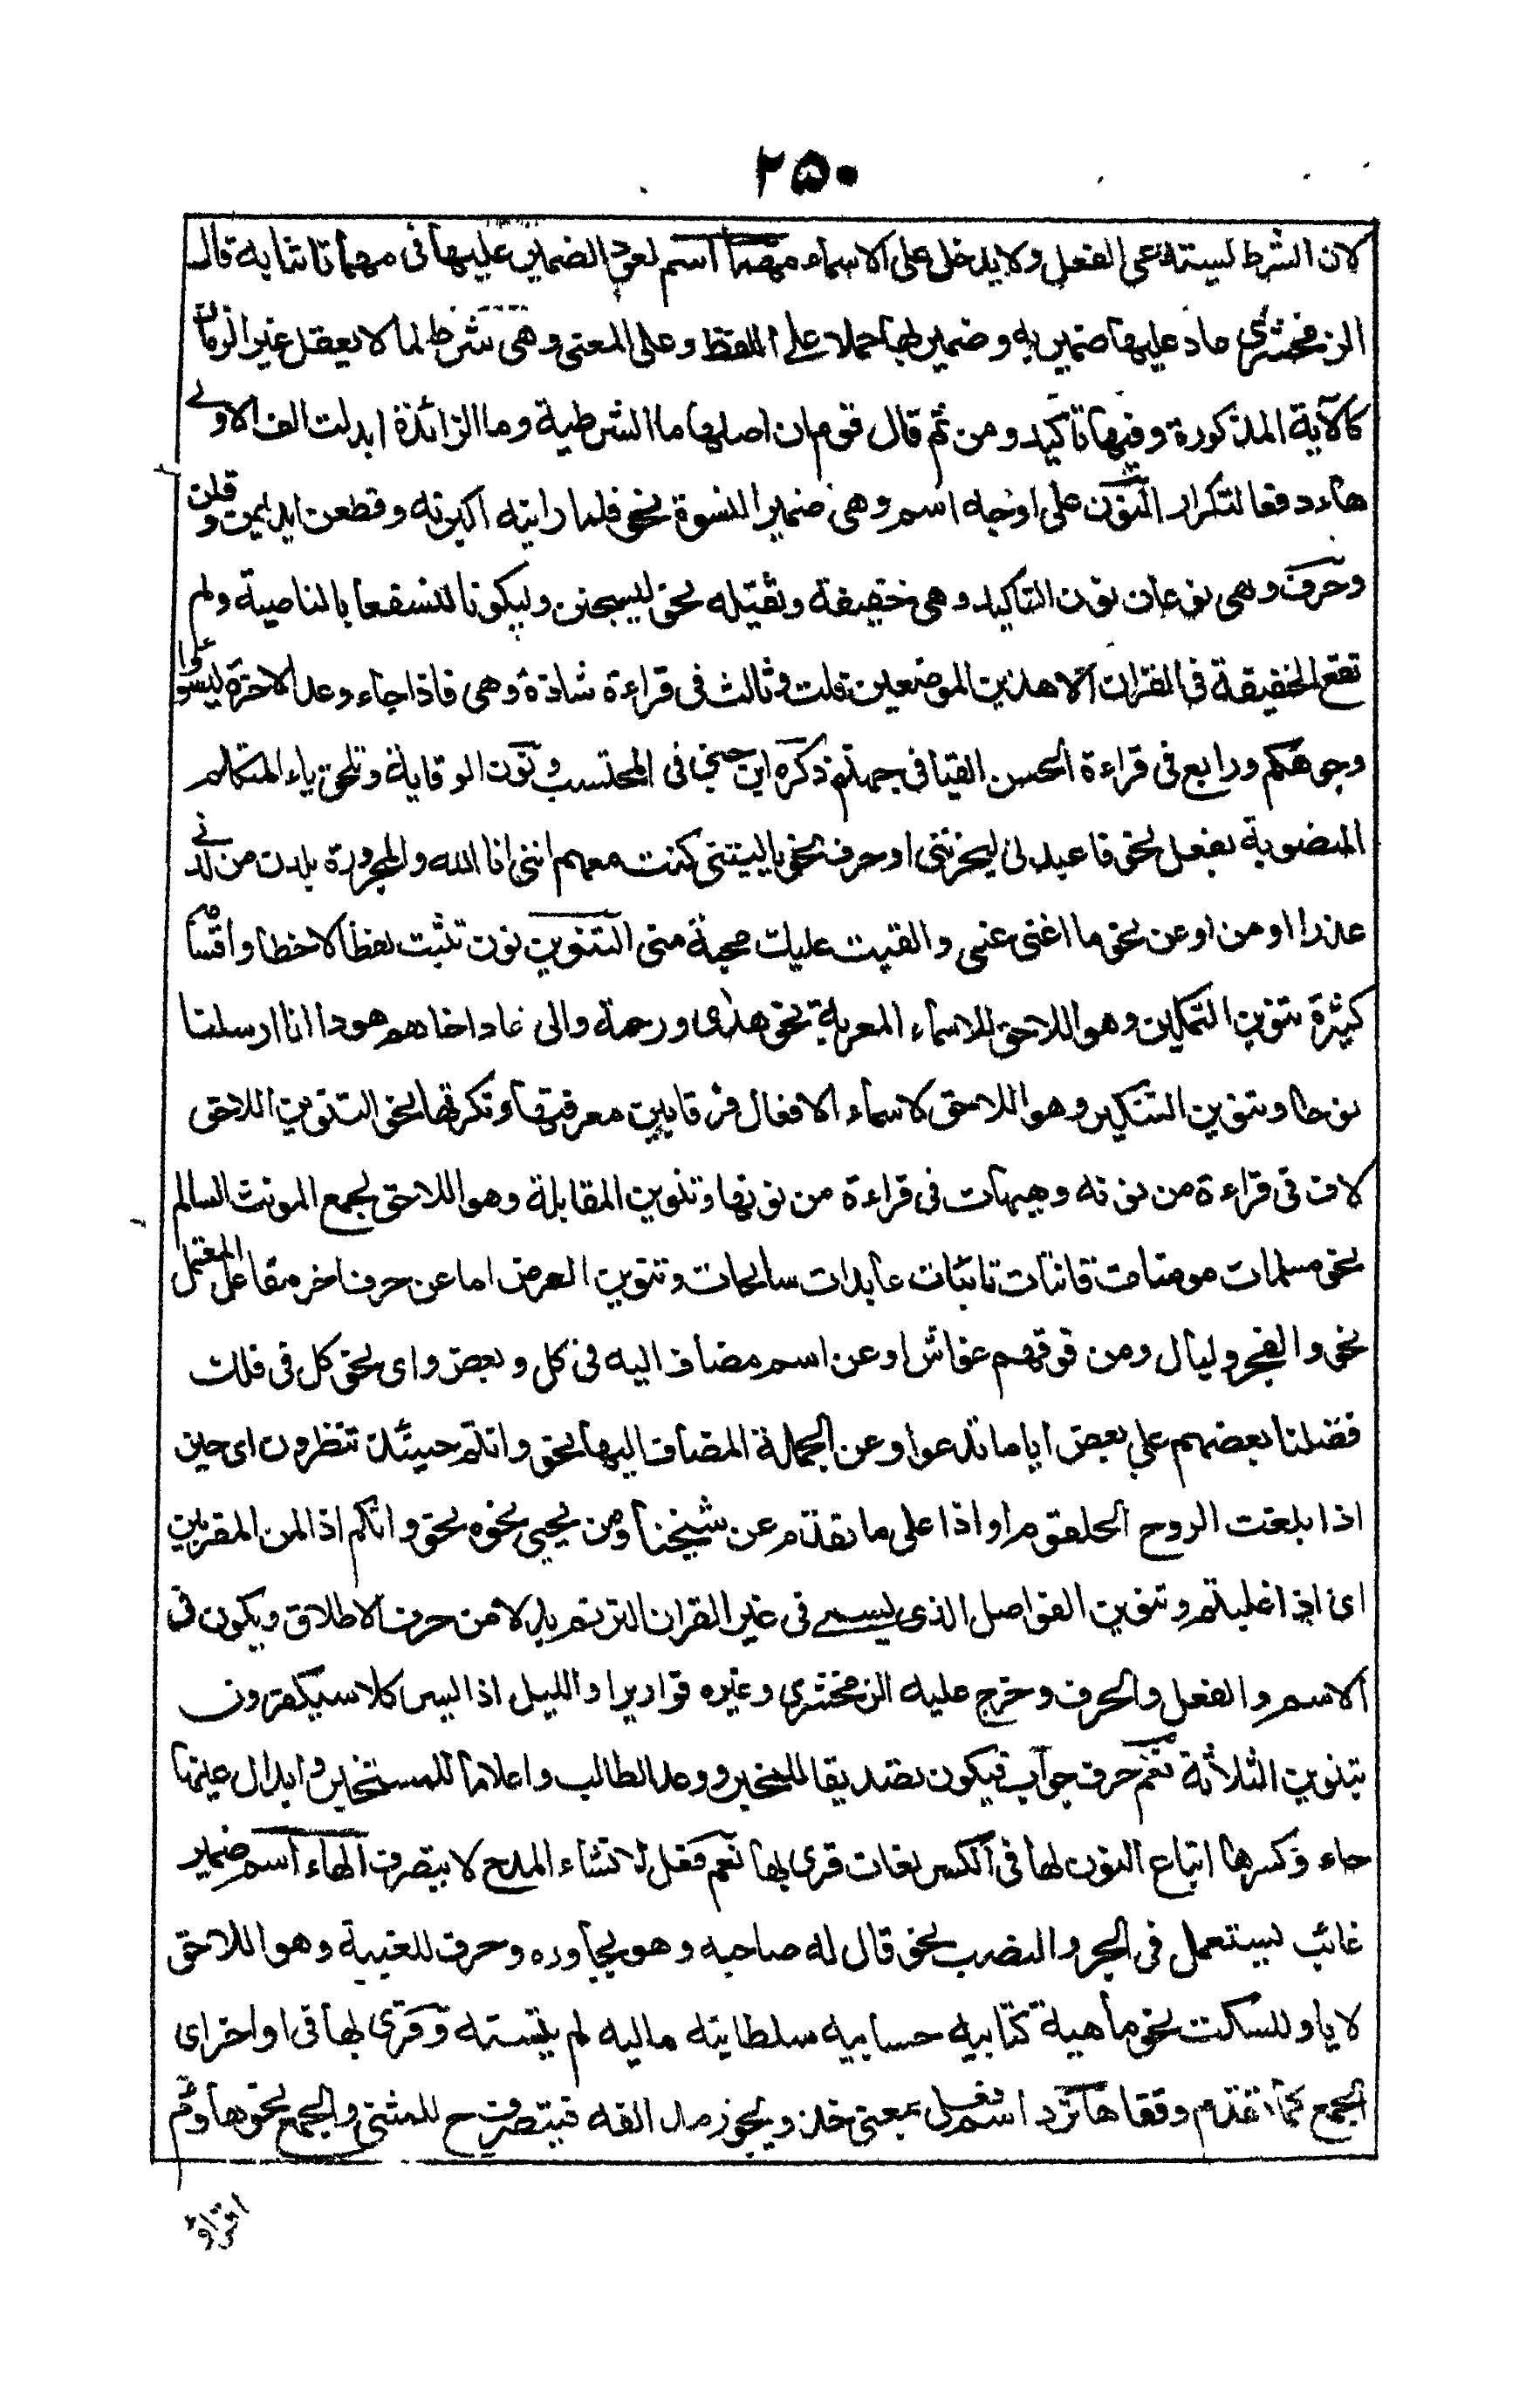 ٢٥٠
لان الشرط يستدعى الفعل ولا يدخل على الاسماء مهما اسم لعود الضمير عليها فى مهما تاتنا به قال
الزمخشرى عاد عليها ضمير به وضمير بها حملا على اللفظ وعلى المعنى وهى شرط لما لا يعقل غير الزمان
كالآية المذكورة وفيها تاكيد ومن ثم قال قوم ان اصلها ما الشرطية وما الزائدة ابدلت الف الاولى
هاء دفعا لتكرار النون على اوجه اسم وهى ضمير النسوة نحو فلما راينه اكبرنه وقطعن ايديهن وقلن
وحرف وهى نوعان نون التاكيد وهى خفيفة وثقيله نحو ليسجنن وليكونا لنسفعا بالناصية ولم
تقع الخفيفة فى القران الا هذين الموضعين قلت وثالث فى قراءة شاذة وهى فاذا جاء وعد الاخرة ليسوا
وجوهكم ورابع فى قراءة الحسن القيا فى جهنم ذكره ابن جنى فى المحتسب ونون الوقاية وتلحق ياء المتكلم
المنصوبة بفعل نحو فاعبدنى ليحزننى او حرف نحو ياليتنى كنت معهم اننى انا الله والمجرورة بلدن من لدنى
عذرا او من او عن نحو ما اغنى عنى والقيت عليك محبة منى التنوين نون تثبت لفظا لا خطا واقسامه
كثيرة تنوين التمكين وهو اللاحق للاسماء المعربة نحو هدى ورحمة والى عاد اخاهم هودا انا ارسلنا
نوحا وتنوين التنكير وهو اللاحق لاسماء الافعال فرقا بين معرفتها ونكرتها نحو التنوين اللاحق
لاف فى قراءة من نونه وهيهات فى قراءة من نونها وتنوين المقابلة وهو اللاحق لجمع المونث السالم
نحو مسلمات مومنات قانتات تائبات عابدات سايحات وتنوين العوض اما عن حرف اخر مفاعل المعتل
نحو والفجر وليال ومن فوقهم غواش او عن اسم مضاف اليه فى كل وبعض واى نحو كل فى فلك
فضلنا بعضهم على بعض اياما تدعوا وعن الجملة المضاف اليها نحو وانتم حينئذ تنظرون اى حين
اذا بلغت الروح الحلقوم او اذا على ما تقدم عن شيخنا ومن يحيى نحوه نحو وانكم اذا لمن المقربين
اى اذا غلبتم وتنوين الفواصل الذى يسمى فى غير القران الترنم بدلا من حرف الاطلاق ويكون فى
الاسم والفعل والحرف وخرج عليه الزمخشرى وغيره قواريرا والليل اذا يسر كلا سيكفرون
بتنوين الثلاثة نعم حرف جواب فيكون تصديقا للمخبر ووعدا للطالب واعلاما للمستخبر وابدال عينها
حاء وكسرها اتباع النون لها فى الكسر لغات قرى بها نعم فعل لانشاء المدح لا يتصرف الهاء اسم ضمير
غائب يستعمل فى الجر والنصب نحو قال له صاحبه وهو يحاوره وحرف للغيبة وهو اللاحق
لايا وللسكت نحو ماهية كتابيه حسابيه سلطانيه ماليه لم يتسنه وقرى بها فى اواخر اى
الجمع كما تقدم وقفا ها ترد اسم فعل بمعنى خذ ويجوز مد الفه فيتصرف ح للمثنى والجمع نحو هاؤم
اقراؤ